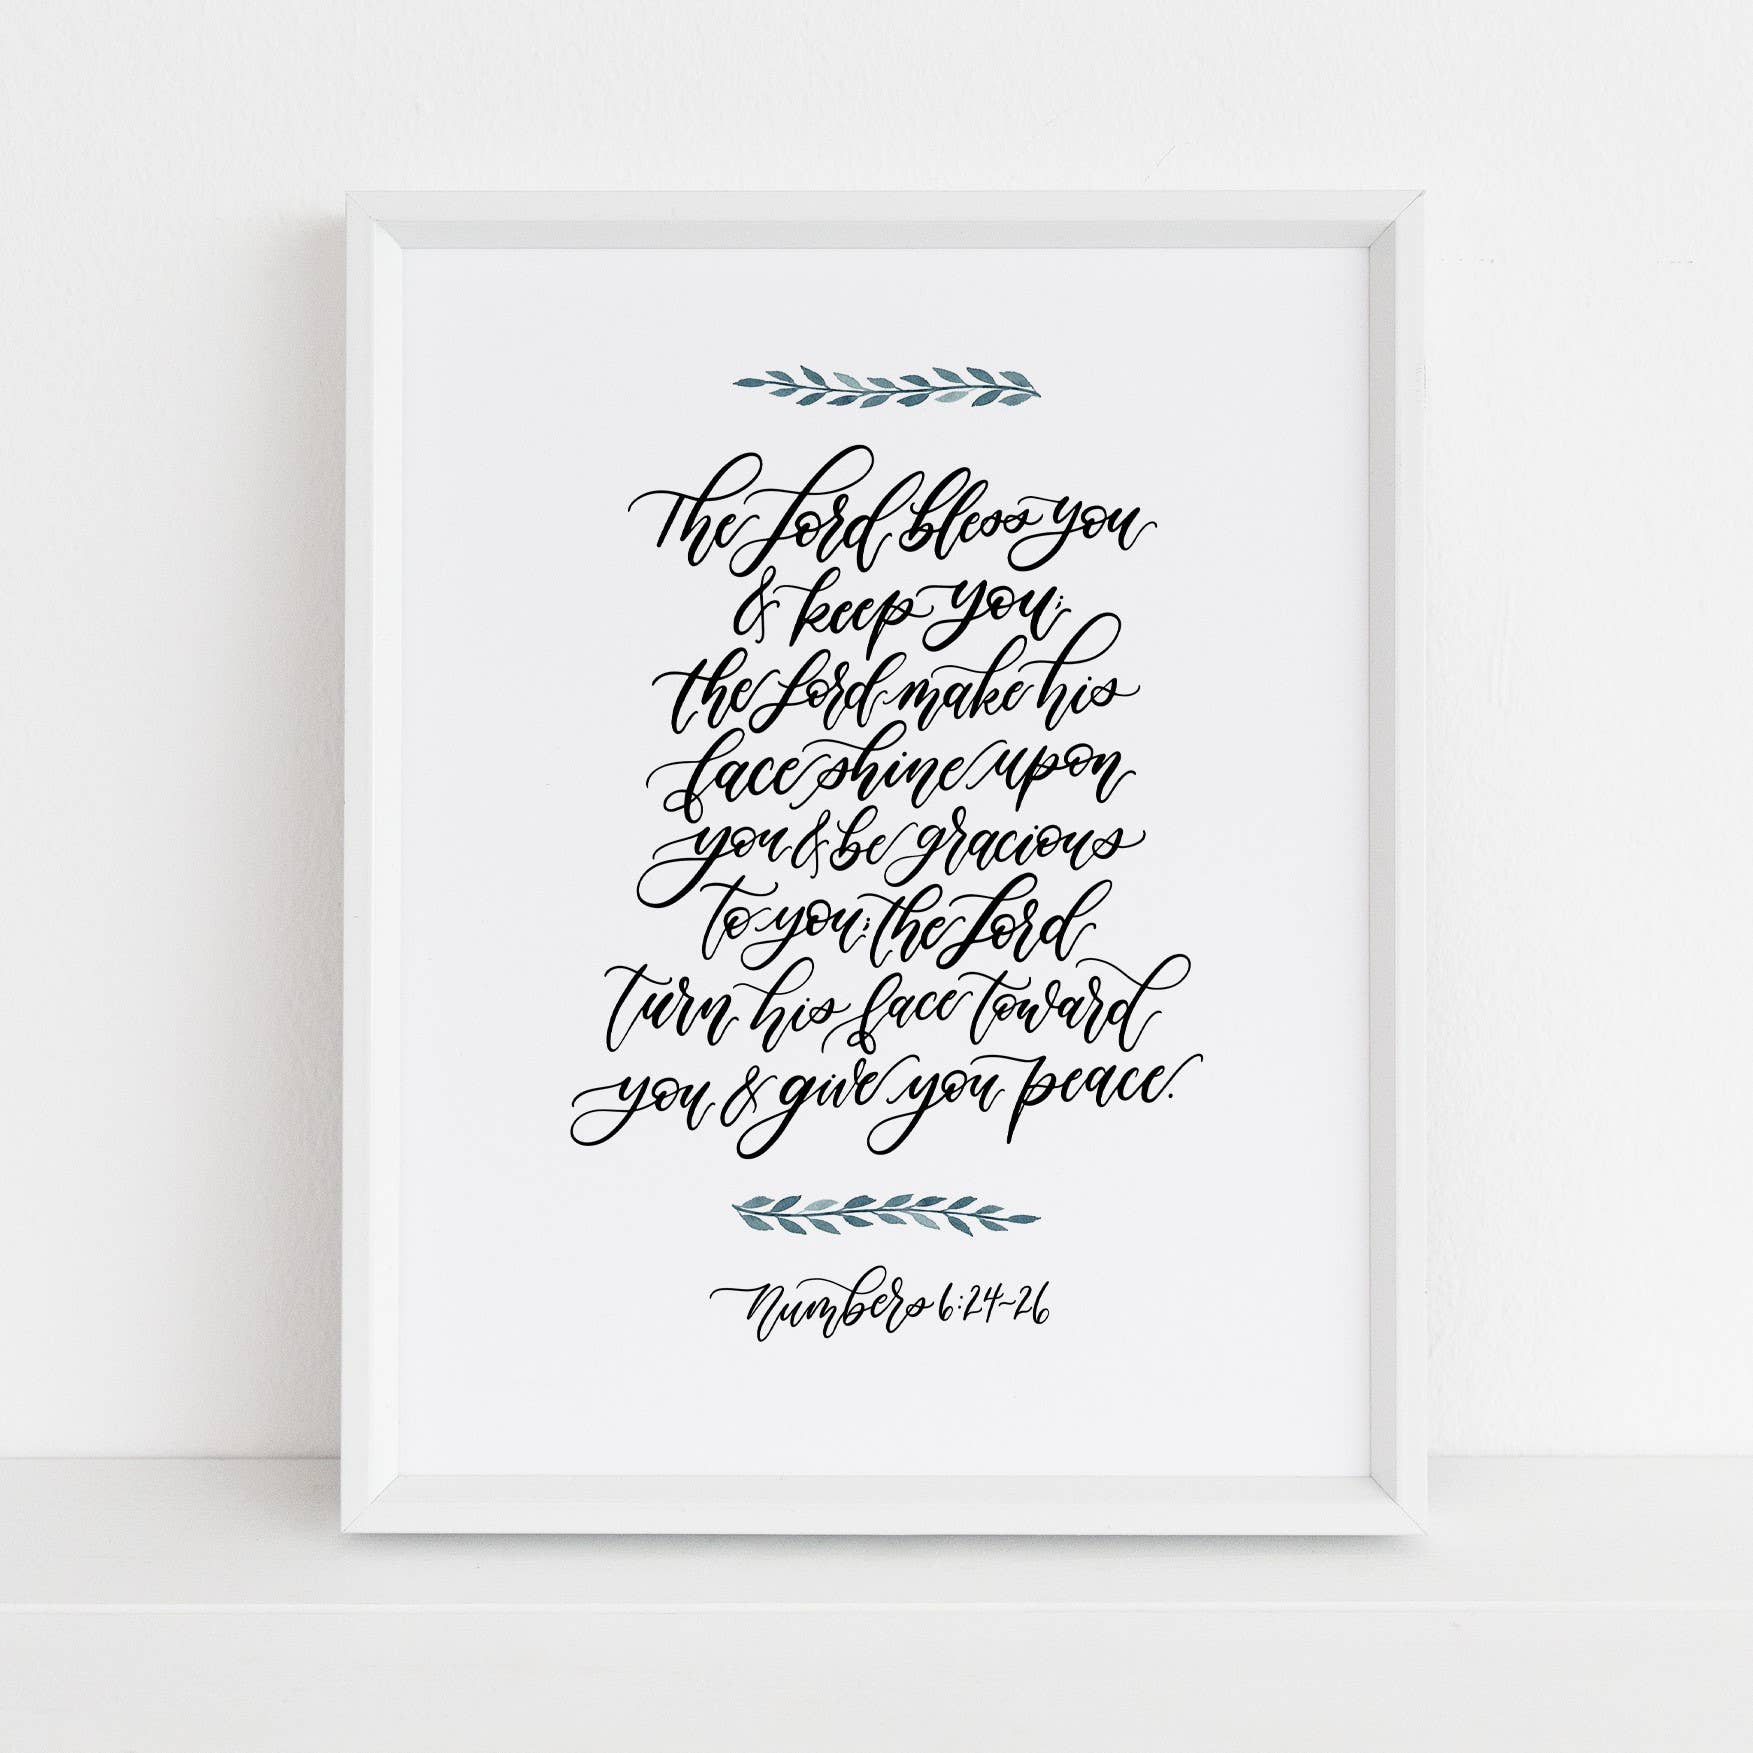 The Lord bless you
& keep you;
the Lord make his
face shine upon
you & be gracious
to you; the Lord
turn his face toward
you & give you peace.
Numbers 6:24-26